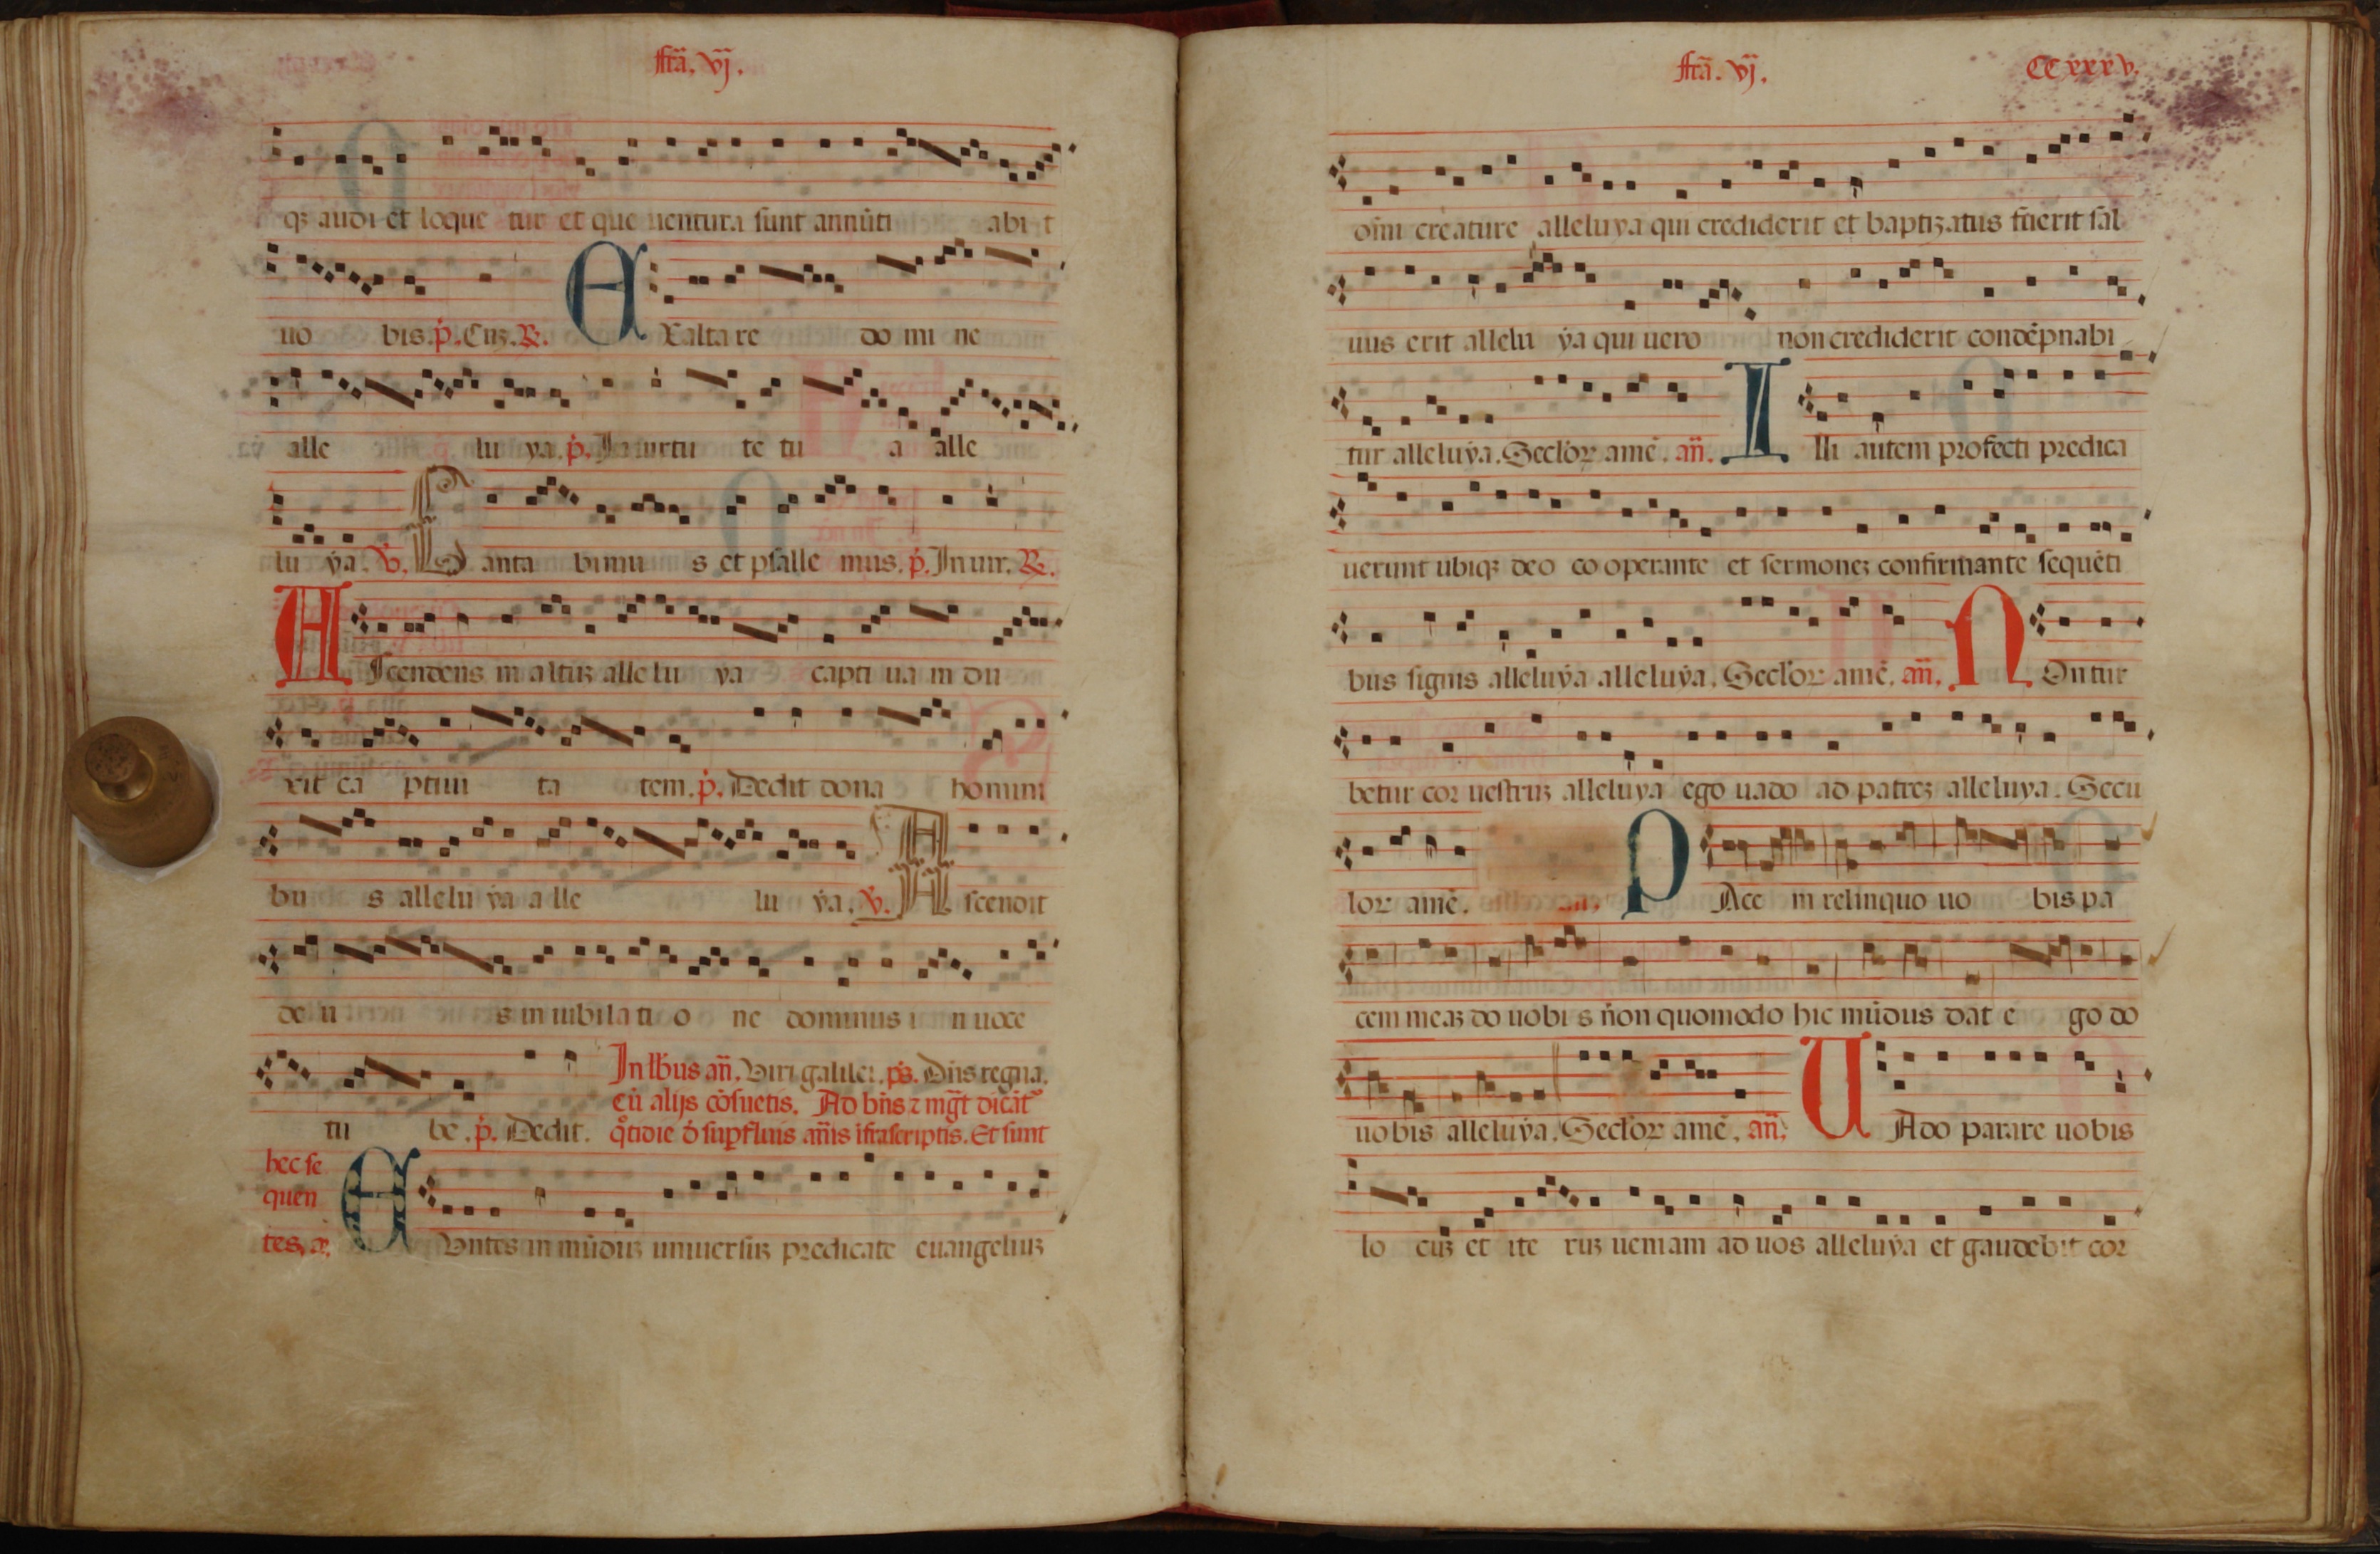 ffa. vj.
qz audi et loque tur et que uentura sunt annūti abi t
uo bis. p. Cuz. R. E Xalta re do mi ne
alle lu ya. p. In uirtu te tu a alle
lu ya. V. C anta bimu s et psalle mus. p. In uir. R.
A Scendens in altuz alle lu ya capti ua m du
xit ca ptiui ta tem. p. Dedit dona homini
bu s allelu ya a lle lu ya. V. A scendit
de u s in iubila ti o ne dominus i n uoce
tu be. p. Dedit.
In lbus añ. Viri galilei. ps. Dñs regna.
cū alijs cōsuetis. Ad bñs ⁊ mgt dicāt
qtidie d supfluis añis ifrascriptis. Et sunt
hec se
quen
tes. a.
E Vntes in mūduz uniuersuz predicate euangeliuz
ffa. vj. CCxxxv.
oīni creature alleluya qui crediderit et baptiz atus fuerit sal
uus erit allelu ya qui uero non crediderit condēpnabi
tur alleluya. Seclor amē. añ. I lli autem profecti predica
uerunt ubiqz deo co operante et sermonez confirmante sequēti
bus signis alleluya alleluya. Seclor amē. añ. N On tur
betur cor uestruz alleluya ego uado ad patrez alleluya. Secu
lor amē. P Ace m relinquo uo bis pa
cem meaz do uobi s non quomodo hic mūdus dat e go do
uobis alleluya. Seclor amē. añ. U Ado parare uobis
lo cuz et ite ruz ueniam ad uos alleluya et gaudebit cor